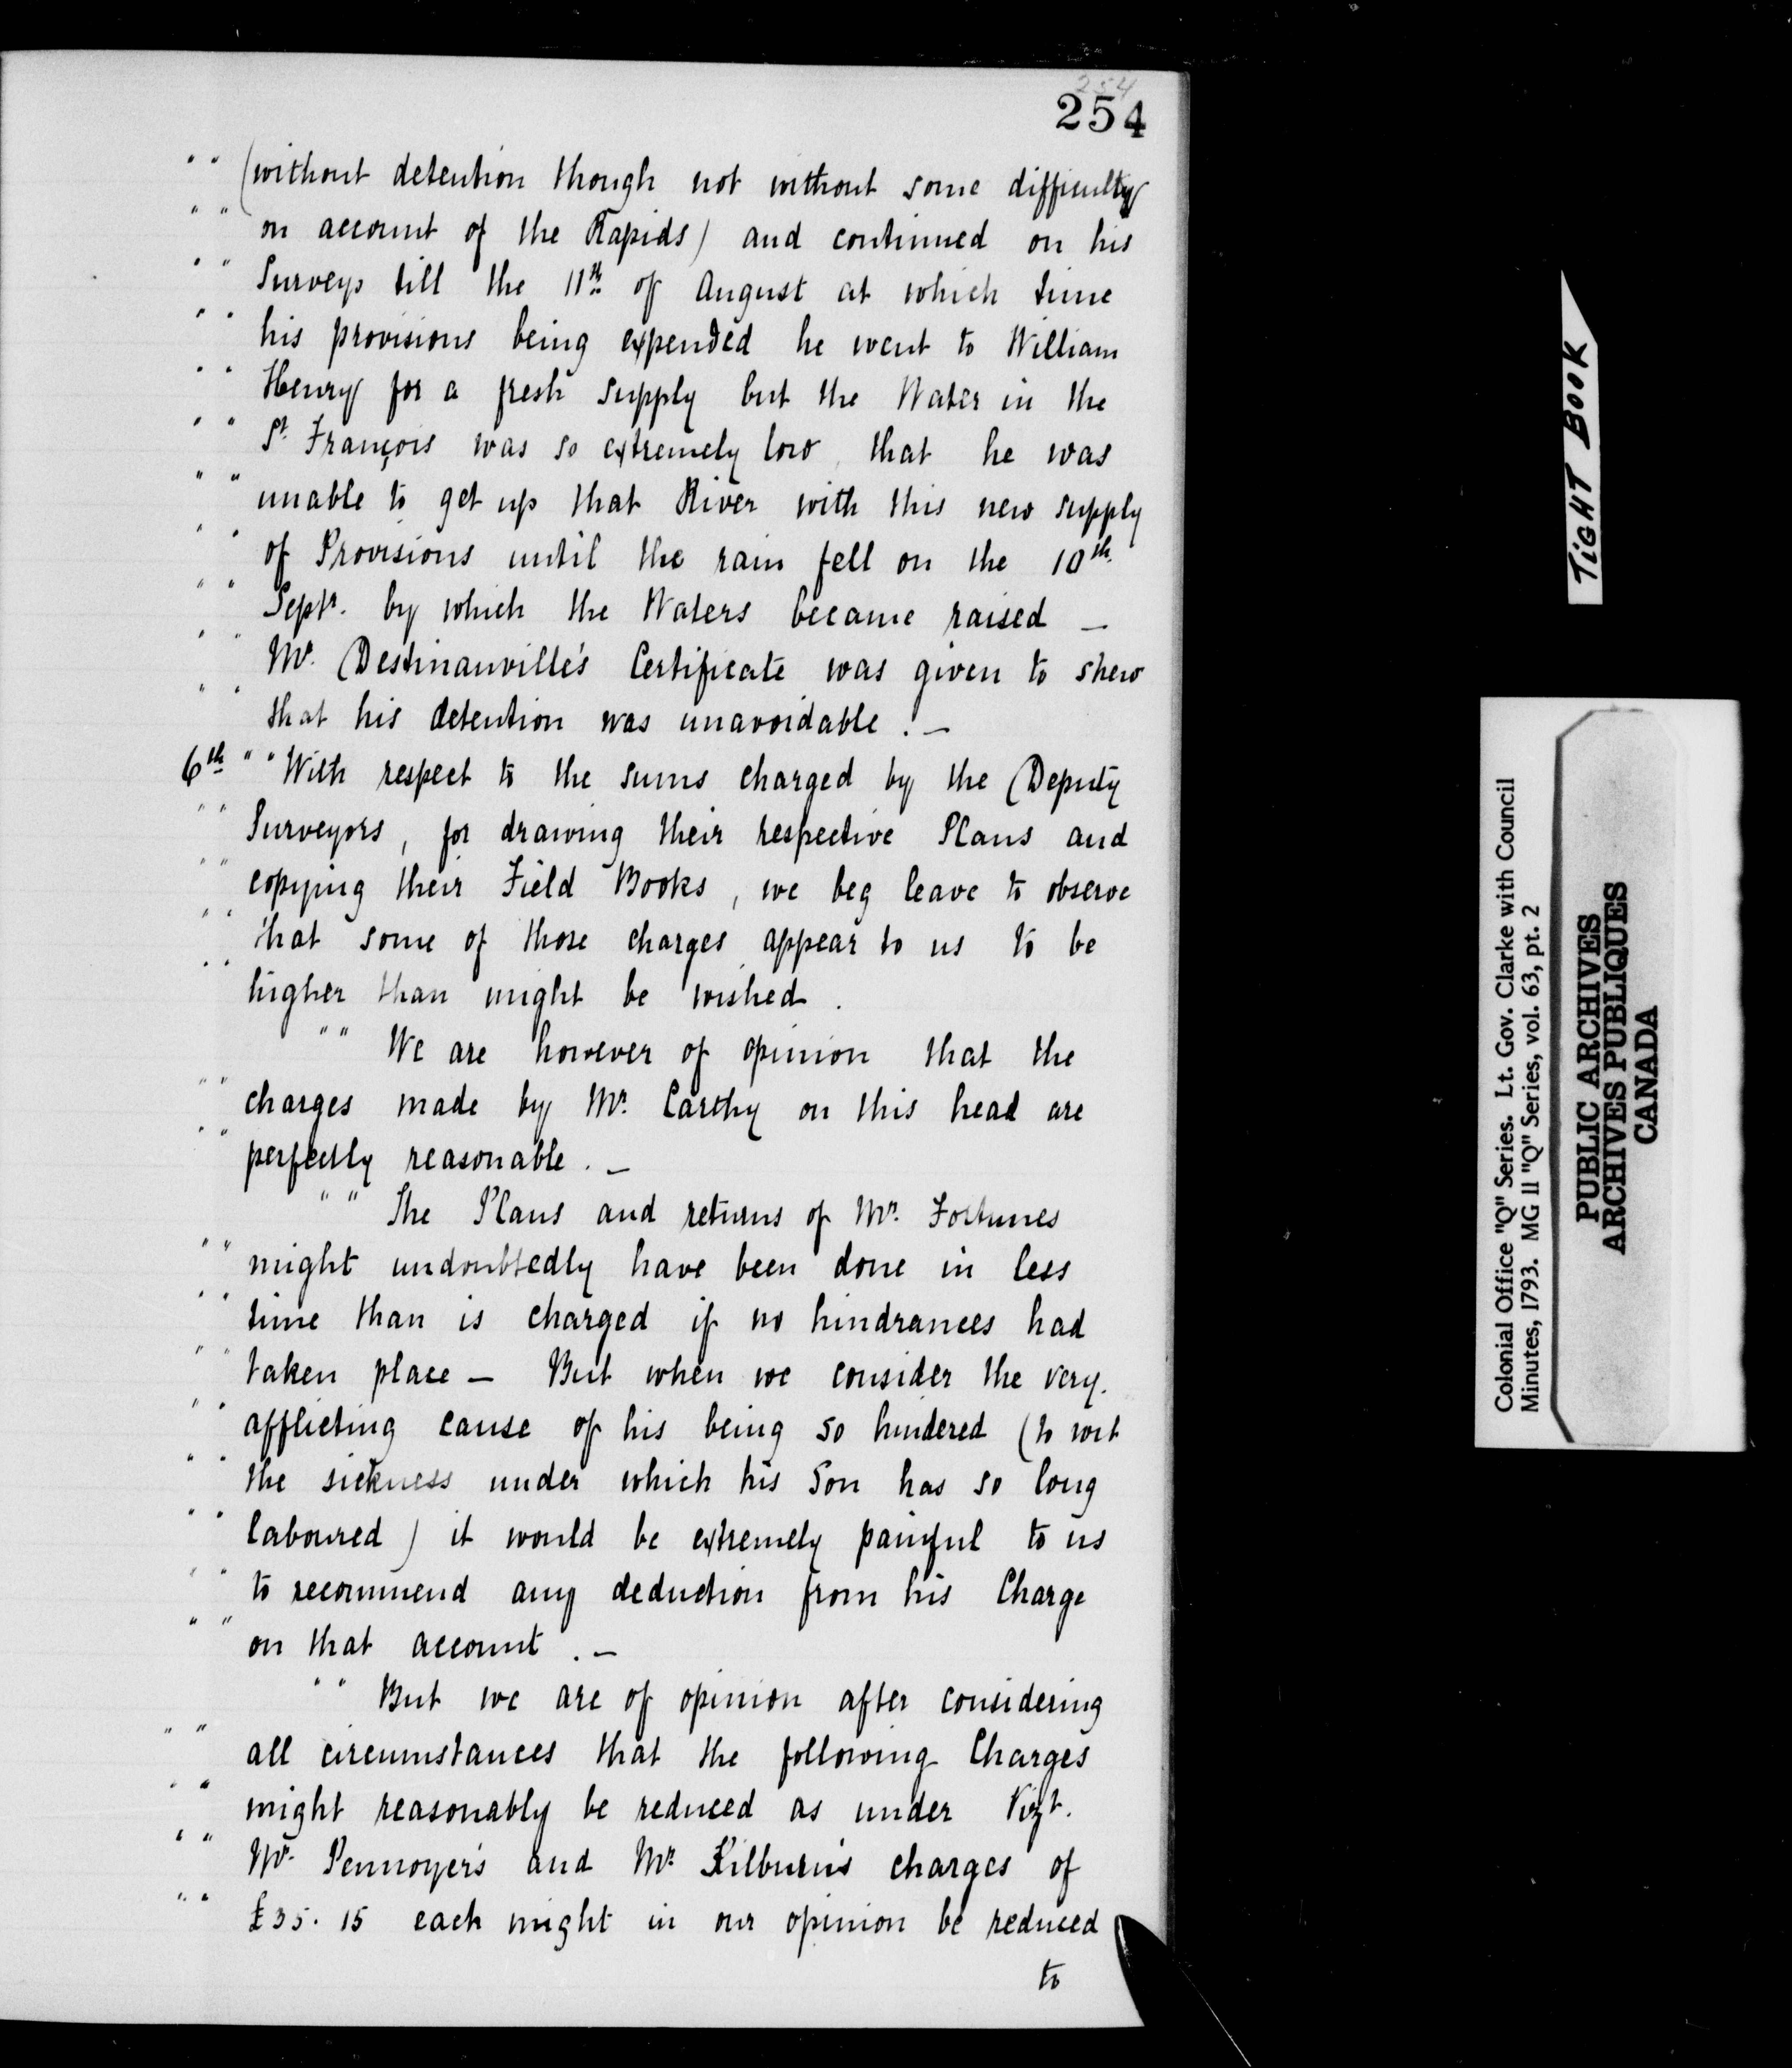 254
254
" " (without detention though not without some difficulty
" " on account of the Rapids) and continued on his
" " Surveys till the 11th of August at which time
" " his provisions being expended he went to William
" " Henry for a fresh supply but the Water in the
" " St François was so extremely low, that he was
" " unable to get up that River with this new supply
" " of Provisions until the rain fell on the 10th
" " Septr. by which the Waters became raised —
" " Mr. Destinauville's Certificate was given to shew
" " that his detention was unavoidable. —
6th " " With respect to the sums charged by the Deputy
" " Surveyors, for drawing their respective Plans and
" " copying their Field Books, we beg leave to observe
" " that some of those charges appear to us to be
" " higher than might be wished.
" " We are however of opinion that the
" " charges made by Mr. Carthy on this head are
" " perfectly reasonable. —
" " The Plans and returns of Mr. Fortunes
" " might undoubtedly have been done in less
" " time than is charged if no hindrances had
" " taken place — But when we consider the very.
" " afflicting cause of his being so hindered (to wit
" " the sickness under which his Son has so long
" " laboured) it would be extremely painful to us
" " to recommend any deduction from his Charge
" " on that account. —
" " But we are of opinion after considering
" " all circumstances that the following Charges
" " might reasonably be reduced as under Vizt.
" " Mr. Pennoyer's and Mr. Kilburn's charges of
" " £35. 15 each might in our opinion be reduced
to
TIGHT BOOK
Colonial Office "Q" Series. Lt. Gov. Clarke with Council
Minutes, 1793. MG 11 "Q" Series, vol. 63, pt. 2
PUBLIC ARCHIVES
ARCHIVES PUBLIQUES
CANADA